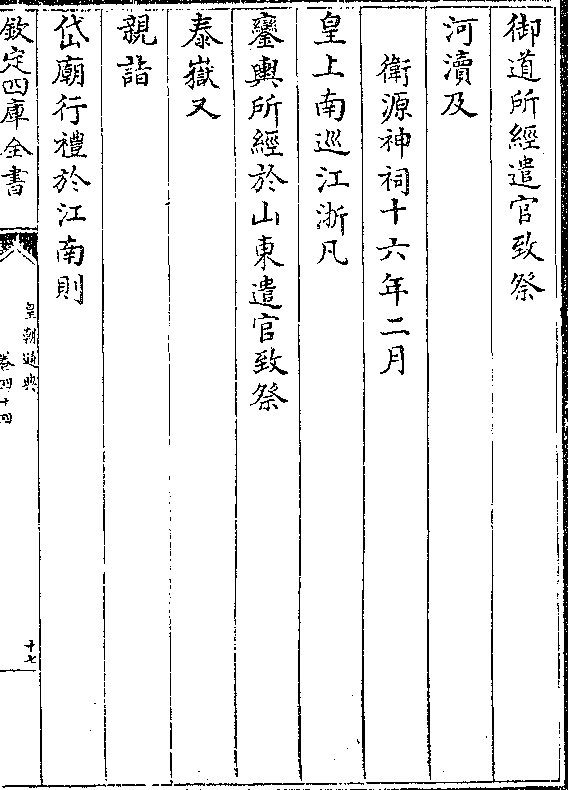 御道所經遣官致祭
河瀆及
衛源神祠十六年二月
皇上南巡江浙凡
鑾輿所經於山東遣官致祭
泰嶽又
親詣
岱廟行禮於江南則
欽定四庫全書
皇朝通典
卷四十四
十七